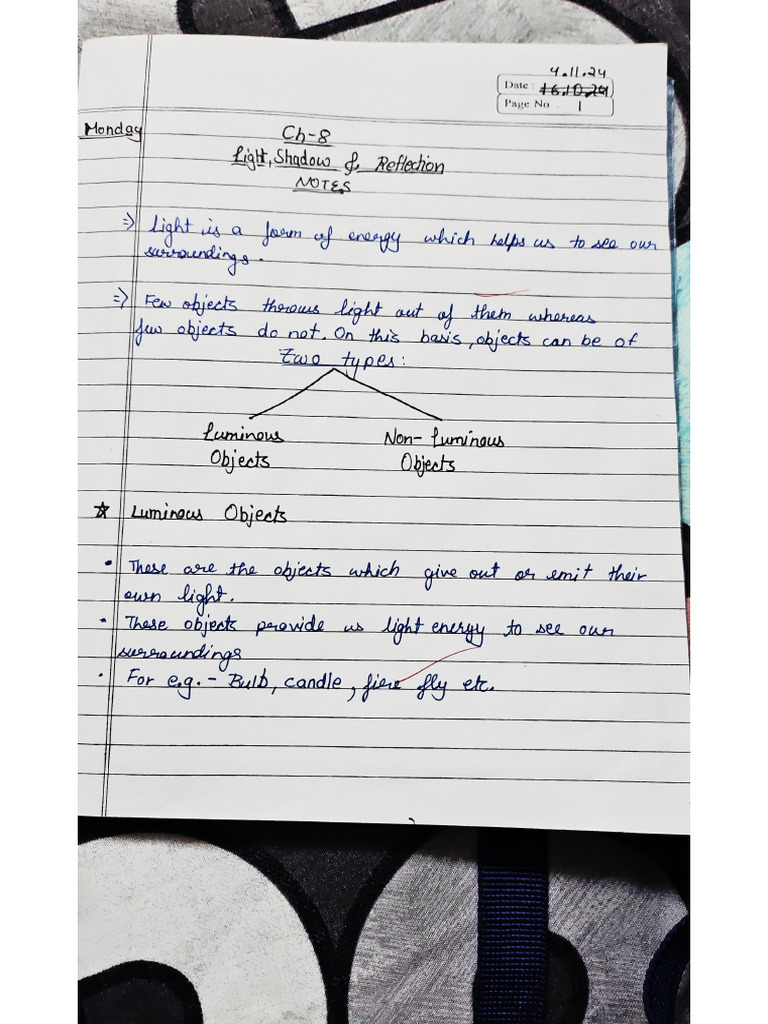 4.11.24
Date : 16.10.24
Page No : 1
Monday
Ch-8
Light, Shadow & Reflection
NOTES
⇒ Light is a form of energy which helps us to see our
surroundings.
⇒ Few objects throws light out of them whereas
few objects do not. On this basis, objects can be of
two types:
Luminous Non- Luminous
Objects Objects
☆ Luminous Objects
• These are the objects which give out or emit their
own light.
• These objects provide us light energy to see our
surroundings
• For e.g. - Bulb, candle, fire fly etc.